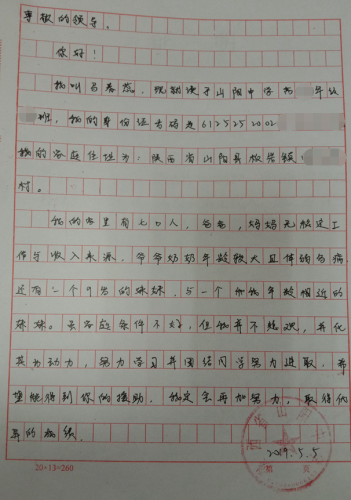 尊敬的领导，
你好！
我叫吕春蕊，现就读于山阳中学 年级
班，我的身份证号码是6125252002
我的家庭住址为：陕西省山阳县板岩镇
村。
我的家里有七口人，爸爸，妈妈无稳定工
作与收入来源，爷爷奶奶年龄较大且体弱多病
还有二个9岁的妹妹，与一个和我年龄相近的
妹妹。虽家庭条件不好，但我并不悲观，并化
其为动力，努力学习并团结同学努力进取，希
望能得到你的援助，我定会再加努力，取得优
异的成绩
2019.5.5
20×13=260
第 页